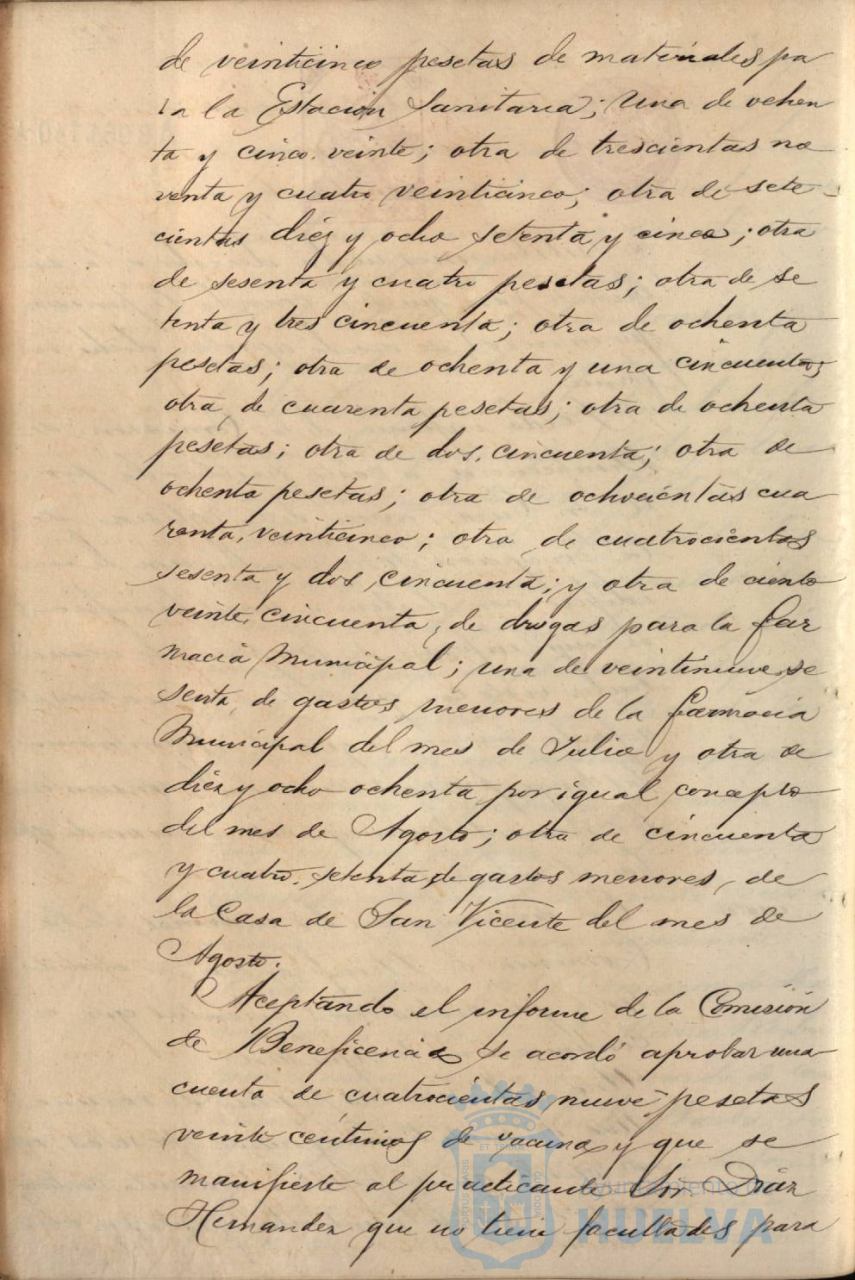 de veinticinco pesetas de materiales pa
ra la Estación Sanitaria; una de ochen
ta y cinco. veinte; otra de trescientas no
venta y cuatro veinticinco; otra de sete-
cientas diéz y ocho setenta y cinco; otra
de sesenta y cuatro pesetas; otra de se
tenta y tres cincuenta; otra de ochenta
pesetas; otra de ochenta y una cincuenta;
otra de cuarenta pesetas; otra de ochenta
pesetas; otra de dos. cincuenta; otra de
ochenta pesetas; otra de ochocientas cua
renta, veinticinco; otra de cuatrocientas
sesenta y dos, cincuenta; y otra de ciento
veinte, cincuenta, de drogas para la far
macia Municipal; una de veintinueve, se
senta, de gastos menores de la farmacia
Municipal del mes de Julio y otra de
diéz y ocho ochenta por igual concepto
del mes de Agosto; otra de cincuenta
y cuatro. setenta, de gastos menores, de
la Casa de San Vicente del mes de
Agosto.
Aceptando el informe de la Comisión
de Beneficencia se acordó aprobar una
cuenta de cuatrocientas nueve pesetas
veinte centimos de vacuna y que se
manifieste al practicante Sor. Diáz
Hernandez que no tiene facultades para
Ayuntamiento de
HUELVA